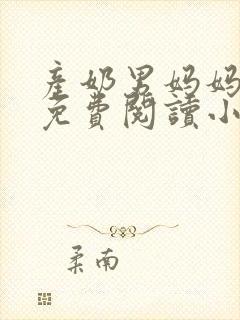 產奶男妈妈
免費閱讀小
柔南